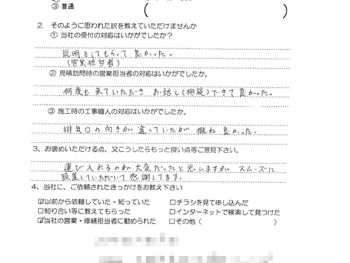 ③ 普通 (
2. そのように思われた訳を教えていただけませんか
① 当社の受付の対応はいかがでしたか?
説明をしてもらって良かった。
(営業担当者)
② 見積訪問時の営業担当者の対応はいかがでしたか?
何度も来ていただき お話し(相談)できて良かった。
③ 施工時の工事職人の対応はいかがでしたか?
排気口の向きが違っていたが 概ね良かった。
3. お褒めいただける点、又こうしたらもっと良い点等ご意見下さい。
運び入れるのが大変だったと思いますが スムーズに
設置していただいて感謝してます。
4. 当社に、ご依頼されたきっかけをお教え下さい
☑以前から依頼していた・知っていた □チラシを見て申し込んだ
□知り合い等に教えてもらった □インターネットで検索して見つけた
☑当社の営業・修繕担当者に勧められた □その他(